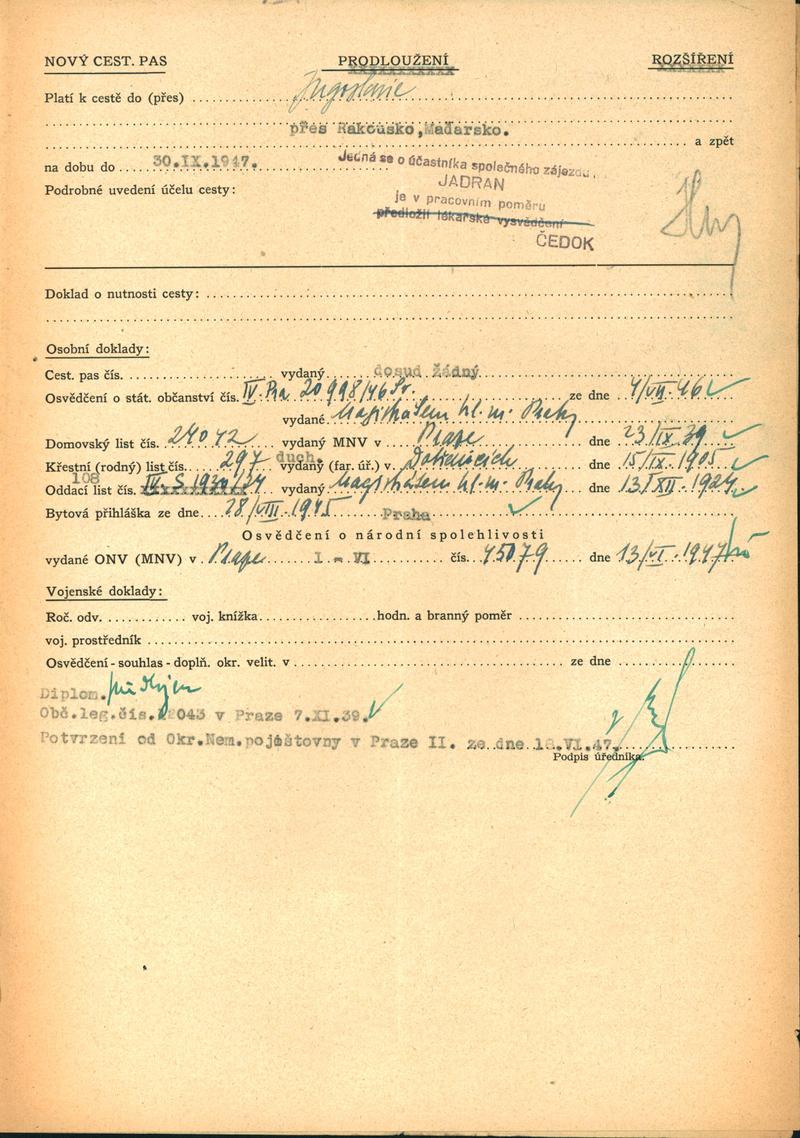 NOVÝ CEST. PAS PRODLOUŽENÍ ROZŠÍŘENÍ
Platí k cestě do (přes) Jugoslavie
přes Rakousko, Maďarsko.
a zpět
na dobu do 30.IX.1947. Jedná se o účastníka společného zájezdu,
JADRAN
Podrobné uvedení účelu cesty:
je v pracovním poměru
předložil lékařské vysvědčení
ČEDOK
Doklad o nutnosti cesty:
Osobní doklady:
Cest. pas čís. vydaný dosud žádný
Osvědčení o stát. občanství čís. IV. 20998/46 ze dne 4/VII.46
vydané Magistrátem hl. m. Prahy
Domovský list čís. 24042 vydaný MNV v Praze dne 23/IX.39
Křestní (rodný) list čís. 297 duch. vydaný (far. úř.) v dne 15/IX.1905
108
Oddací list čís. vydaný Magistrátem hl. m. Prahy dne 13/XII.1924
Bytová přihláška ze dne 28/VIII.1945 Praha
Osvědčení o národní spolehlivosti
vydané ONV (MNV) v Praze I - VI čís. 45079 dne 13/VI.1947
Vojenské doklady:
Roč. odv. voj. knížka hodn. a branný poměr
voj. prostředník
Osvědčení - souhlas - doplň. okr. velit. v ze dne
Diplom.
Obč.leg.čís. 2043 v Praze 7.XI.39.
Potvrzení od Okr.Nem.pojištovny v Praze II. ze dne 18.VI.47.
Podpis úředníka.